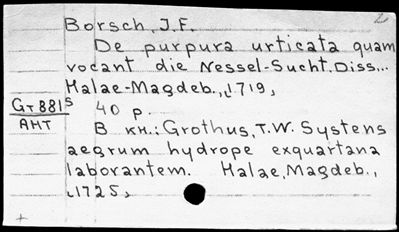 Borsch, J.F.
De purpura urticata quam
vocant die Nessel-Sucht. Diss...
Halae-Magdeb., [1719]
40 p.
Gт 881s
АНТ
В кн.: Grothus, T.W. Systens
aegrum hydrope exquartana
laborantem. Halae, Magdeb.,
[1725]